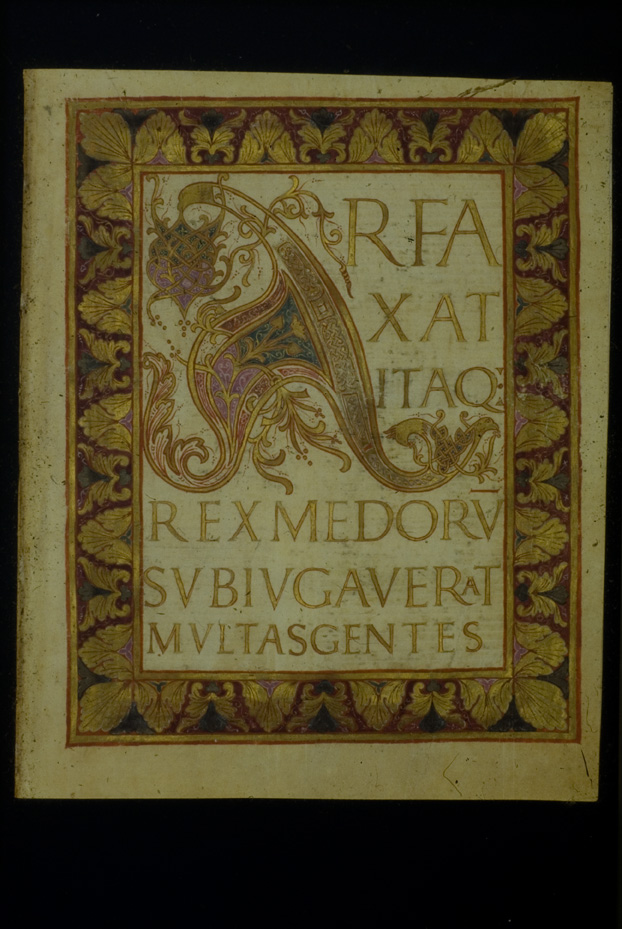 ARFA
XAT
ITAQ:
REXMEDORV̄
SVBIVGAVERAT
MVLTASGENTES